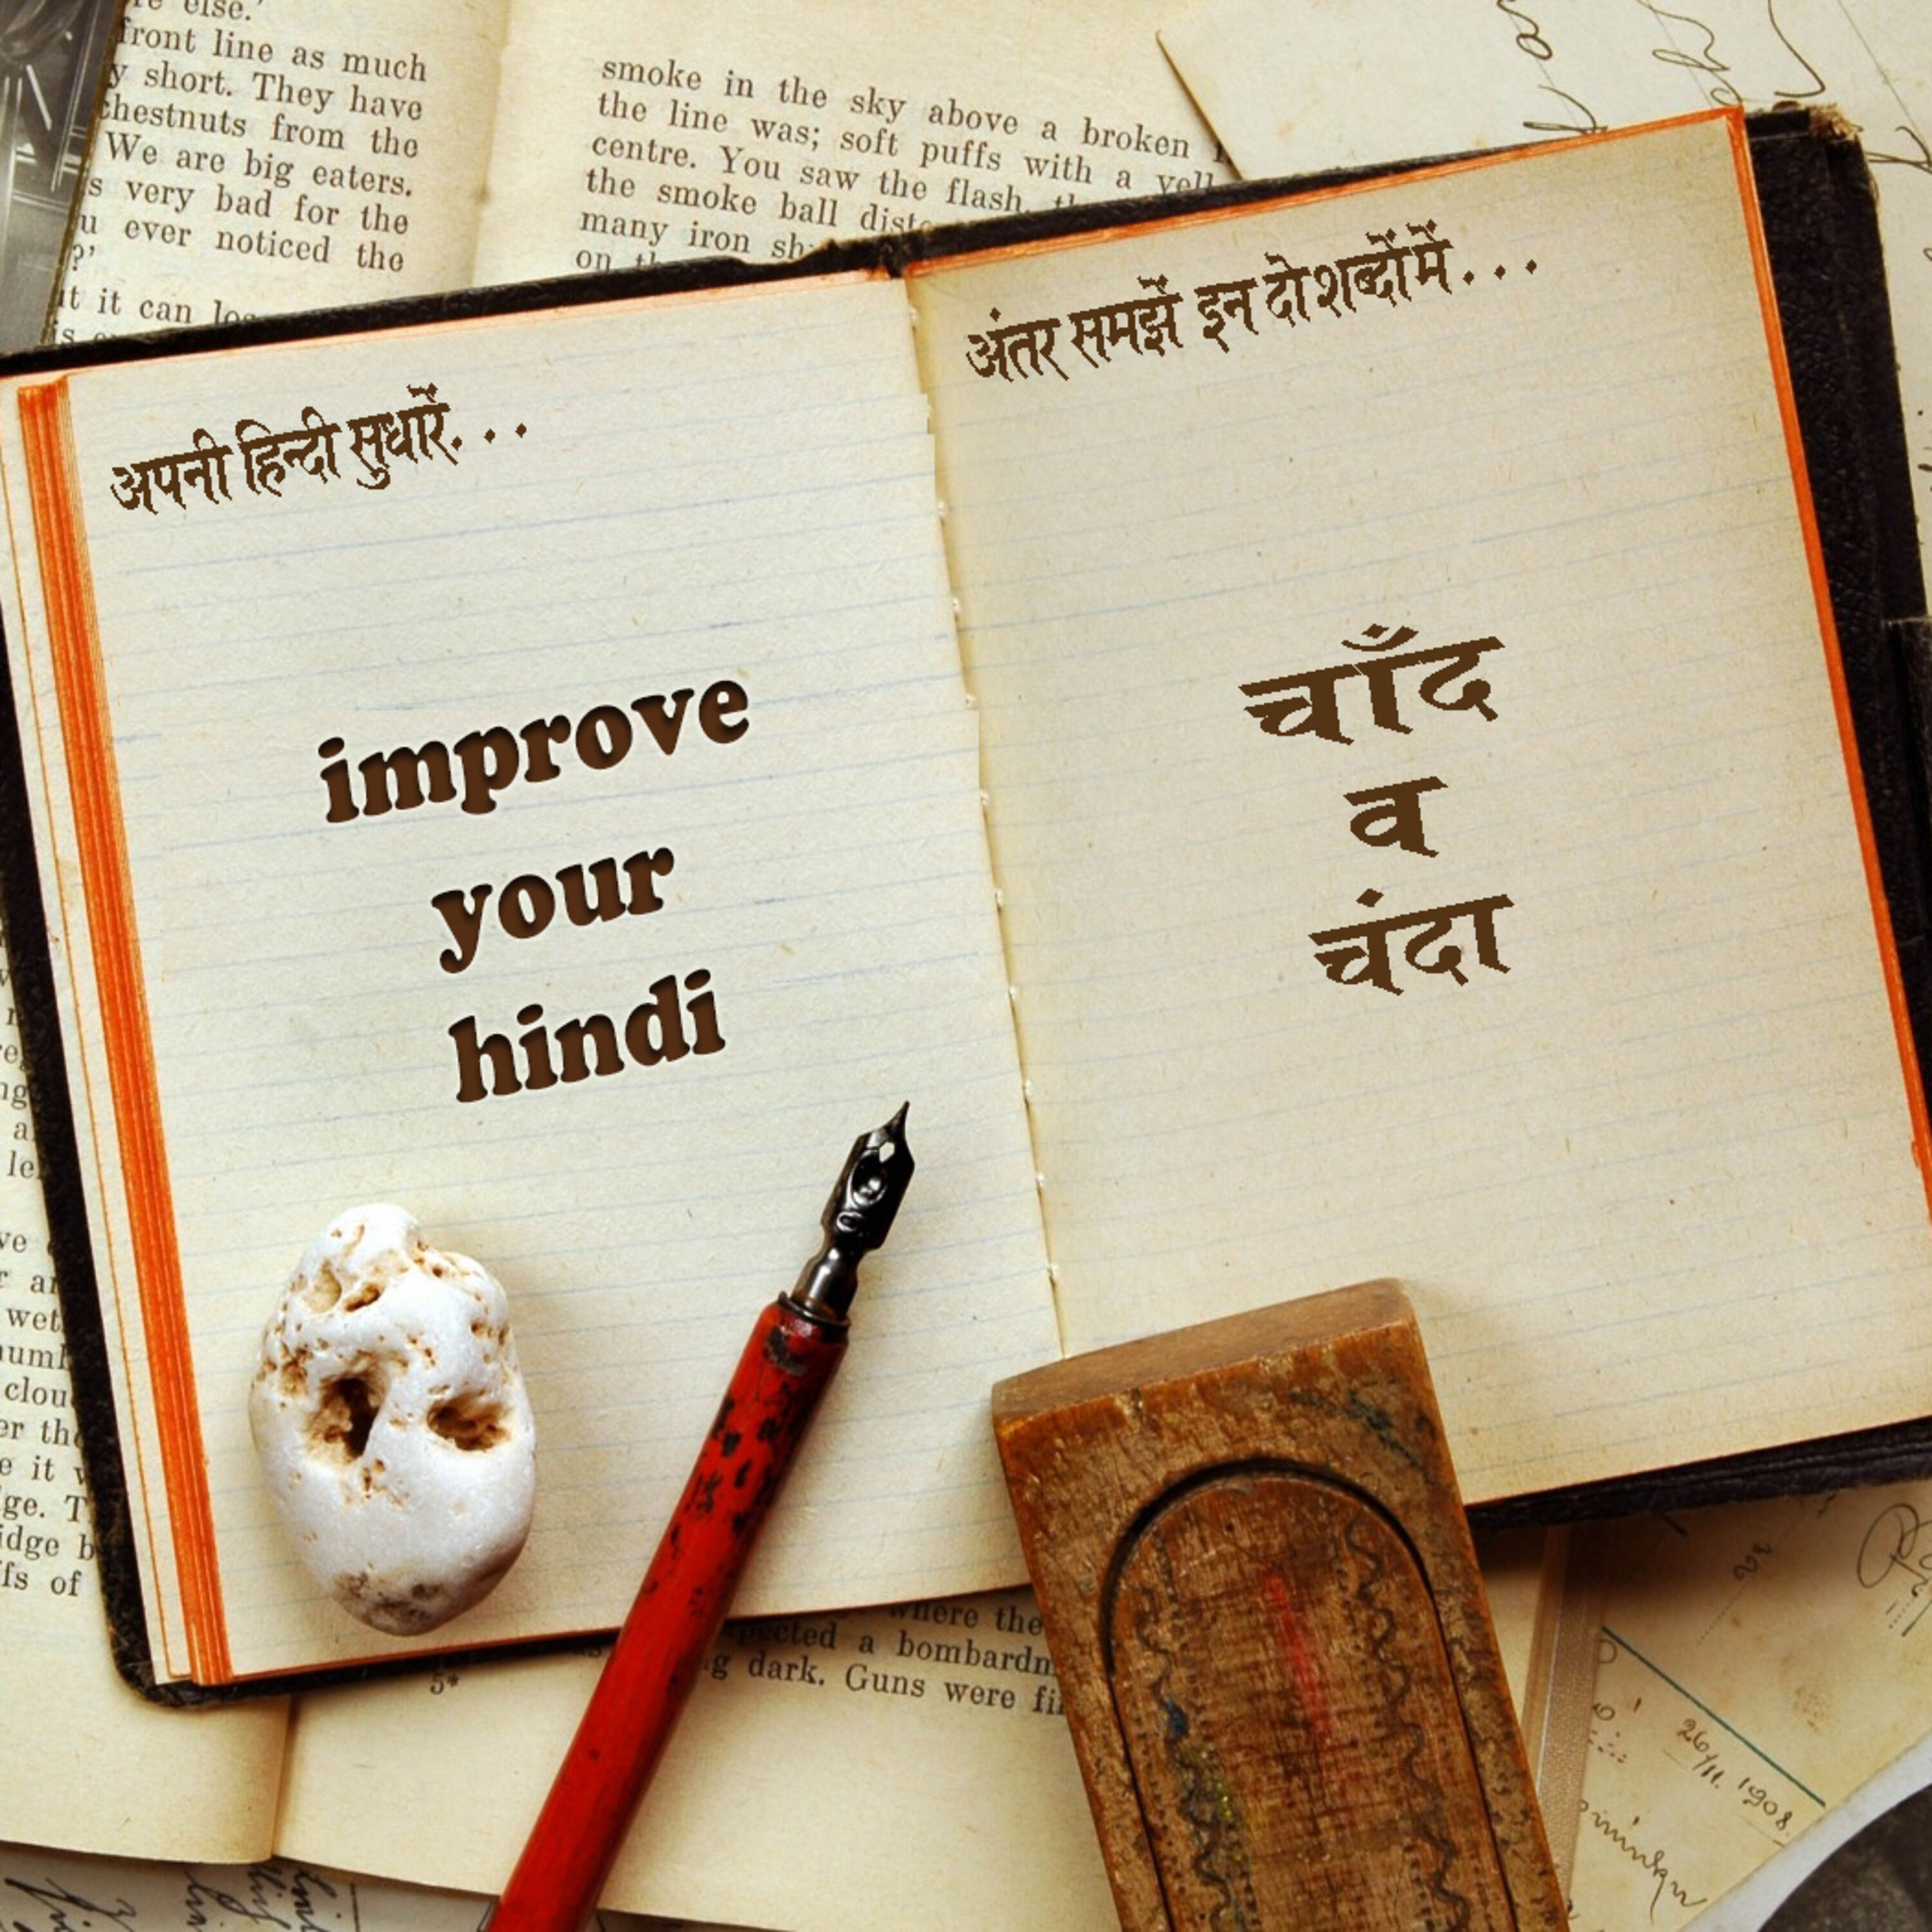 front line as much
short. They have
chestnuts from the
We are big eaters.
very bad for the
ever noticed the
it can
smoke in the sky above a broken
the line was; soft puffs with a
centre. You saw the flash,
the smoke ball
many iron
on
अपनी हिन्दी सुधारें...
improve
your
hindi
अंतर समझें इन दो शब्दों में...
चाँद
व
चंदा
where the
a bombardm
dark. Guns were
5*
26/11. 1908.